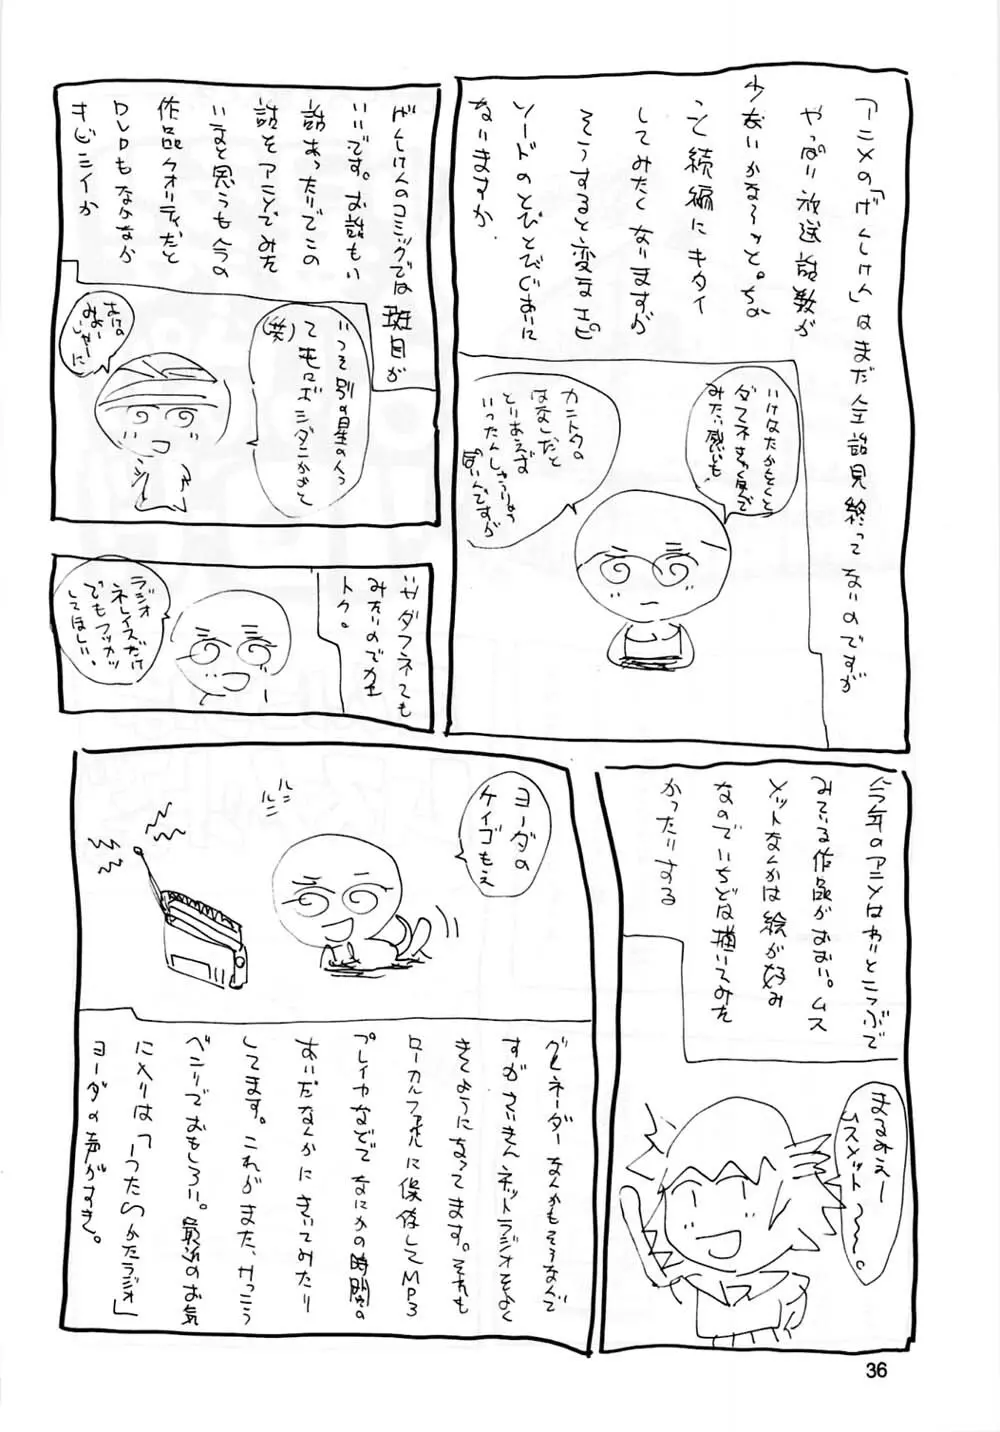 アニメの「げんしけん」はまだ全話見終ってないのですが
やっぱり放送話数が
少ないかな〜っと。ちょ
っと続編にキタイ
してみたくなりますが
そうすると変なエピ
ソードのとびとびぐあいに
ないますか
みたい感いも
カントクの
はなしだと
とりあえず
いったんしゅうりょう
ぽいんですが
げんしけんのコミックでは斑目が
いいです。お話もいい
話あったりでこの
話をアニメでみた
いなと思うも今の
作品クオリティだと
DVDもなかなか
キビシイか
いっそ別の星の人っ
て
(笑)
いやダフネても
みたいのでカエ
トク。
ラジオ
ネレイズだけ
でもフッカツ
してほしい。
今年のアニメはわりとこつぶで
みている作品がおおい。ムス
メットなんかは絵が好み
なのでいちどは描いてみた
かったりする
まるみえー
ムスメット〜〜。
ヨーダの
ケイゴもえ
グレネーダーなんかもそうなんで
すがさいきんネットラジオをよく
きくようになってます。それも
ローカルファイルに保存してMP3
プレイヤなどでなにかの時間の
あいだなんかにきいてみたり
してます。これがまた、けっこう
ベンリでおもしろい。最近のお気
に入りは「うたわれかたラジオ」
ヨーダの声がすき。
36